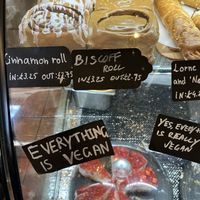 Cinnamon roll
IN:£3.25 OUT:£2.75
BISCOFF
ROLL
IN:£3.25 OUT:£2.75
Lorne
and 'N
IN:£4.2
EVERYTHING
IS VEGAN
YES, EVERYTHING
IS REALLY
VEGAN